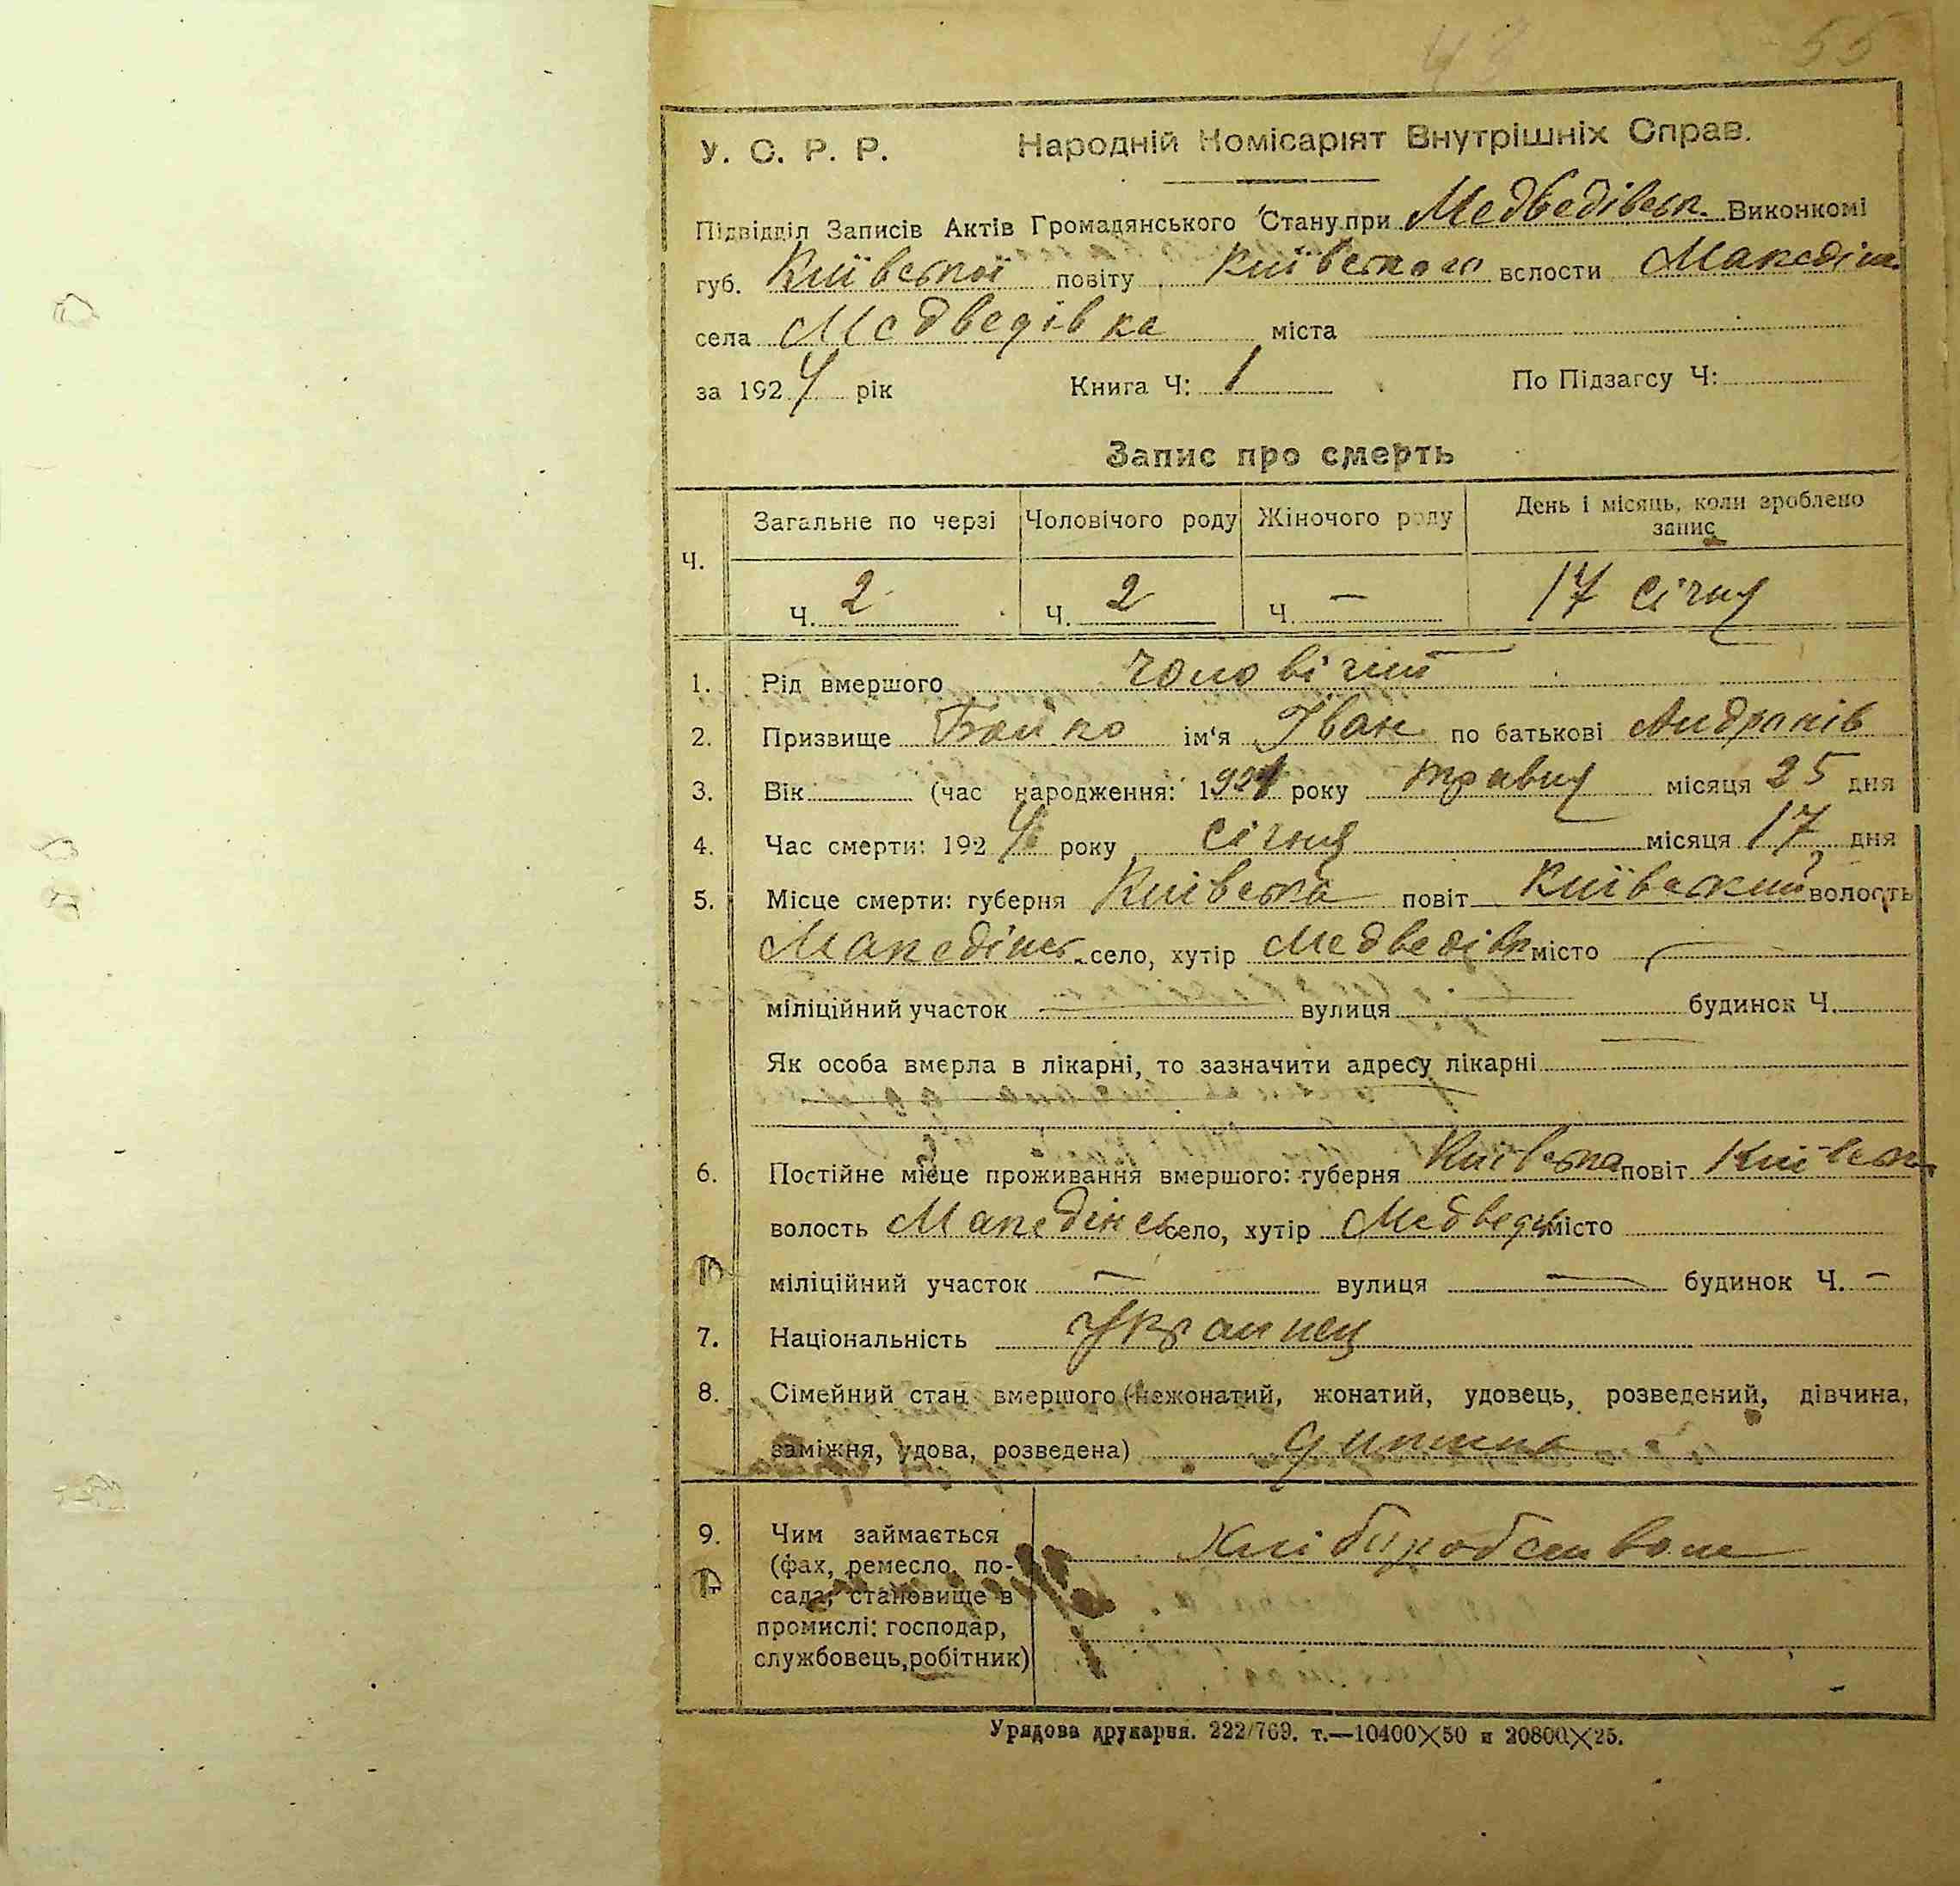 43 55
У. С. Р. Р. Народній Комісаріят Внутрішніх Справ.
Підвідділ Записів Актів Громадянського Стану при Медведівськ. Виконкомі
губ. Київської повіту Київського волости
села Медведівка міста
за 1924 рік Книга Ч: 1 По Підзагсу Ч:
Запис про смерть
Ч. Загальне по черзі Чоловічого роду Жіночого роду День і місяць, коли зроблено
запис
Ч. 2 Ч. 2 Ч. — 17 січня
1. Рід вмершого чоловічий
2. Призвище Бойко ім'я Іван по батькові
3. Вік (час народження: 1921 року травня місяця 25 дня
4. Час смерти: 1924 року січня місяця 17 дня
5. Місце смерти: губерня Київська повіт Київський волость
село, хутір Медведівк місто —
міліційний участок — вулиця — будинок Ч.
Як особа вмерла в лікарні, то зазначити адресу лікарні —
6. Постійне місце проживання вмершого: губерня Київська повіт Київськ
волость село, хутір Медведів місто
міліційний участок — вулиця — будинок Ч. —
7. Національність Украинец
8. Сімейний стан вмершого (нежонатий, жонатий, удовець, розведений, дівчина,
заміжня, удова, розведена) дитина
9. Чим займається хліборобством
(фах, ремесло, по-
сада, становище в
промислі: господар,
службовець, робітник)
Урядова друкарня. 222/769. т.—10400×50 и 20800×25.